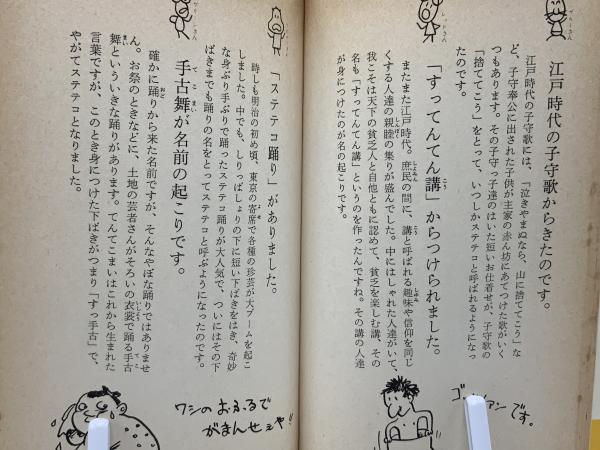 江戸時代の子守歌からきたのです。
江戸時代の子守歌には、「泣きやまぬなら、山に捨ててこう」な
ど、子守奉公に出された子供が主家の赤ん坊にあてつけた歌がいく
つもあります。その子守っ子達のはいた短いお仕着せが、子守歌の
「捨ててこう」をとって、いつしかステテコと呼ばれるようになっ
たのです。
「すってんてん講」からつけられました。
またまた江戸時代。庶民の間に、講と呼ばれる趣味や信仰を同じ
くする人達の親睦の集りが盛んでした。中にはしゃれた人達がいて、
我こそは天下の貧乏人と自他ともに認めて、貧乏を楽しむ講、その
名も「すってんてん講」というのを作ったんですね。その講の人達
が身につけたのが名の起こりです。
ゴ アンです。
「ステテコ踊り」がありました。
時しも明治の初め頃、東京の寄席で各種の珍芸が大ブームを起こ
しました。中でも、しりっぱしょりの下に短い下ばきをはき、奇妙
な身ぶり手ぶりで踊ったステテコ踊りが大人気で、ついにはその下
ばきまでも踊りの名をとってステテコと呼ぶようになったのです。
手古舞が名前の起こりです。
確かに踊りから来た名前ですが、そんなやぼな踊りではありませ
ん。お祭のときなどに、土地の芸者さんがそろいの衣裳で踊る手古
舞といういきな踊りがあります。てんてこまいはこれから生まれた
言葉ですが、このとき身につけた下ばきがつまり「すっ手古」で、
やがてステテコとなりました。
ワシのおふるで
がまんせぇや!!